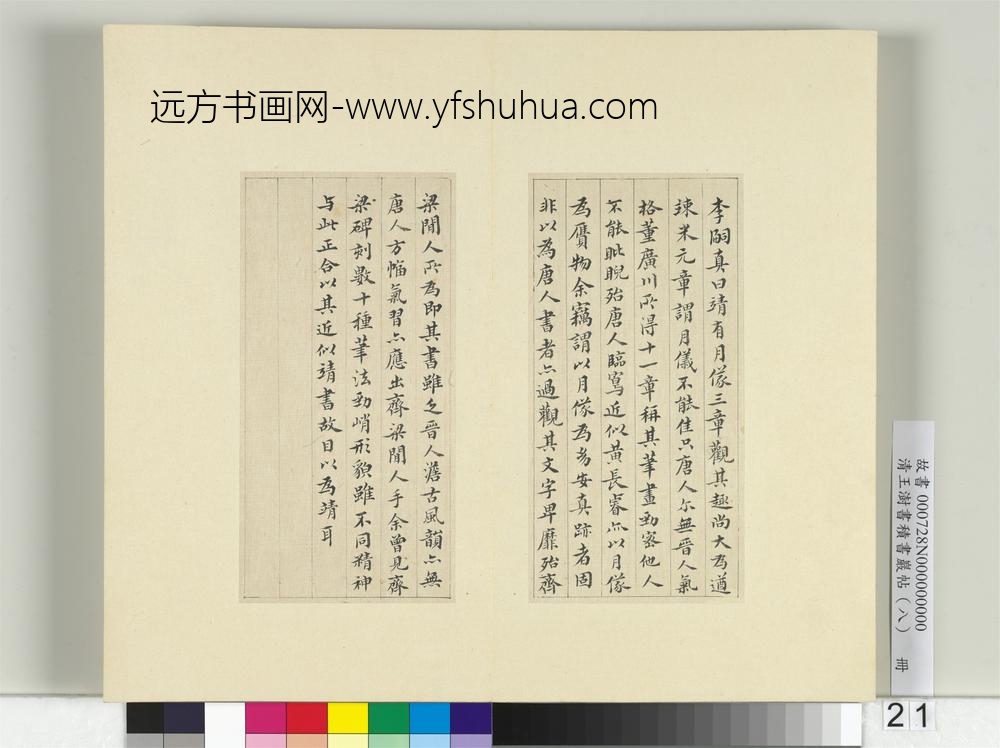 远方书画网-www.yfshuhua.com
李嗣真曰靖有月儀三章觀其趣尚大為遒
竦米元章謂月儀不能佳只唐人尒無晉人氣
格董廣川所得十一章稱其筆畫勁密他人
不能睥睨殆唐人臨寫近似黃長睿亦以月儀
為贋物余竊謂以月儀為幼安真跡者固
非以為唐人書者亦過觀其文字卑靡殆齊
梁閒人所為即其書雖乏晉人澹古風韻亦無
唐人方幅氣習亦應出齊梁閒人手余曾見齊
梁碑刻數十種筆法勁峭形貌雖不同精神
与此正合以其近似靖書故目以為靖耳
故書 000728N000000000
清王澍書積書巖帖(八) 冊
21